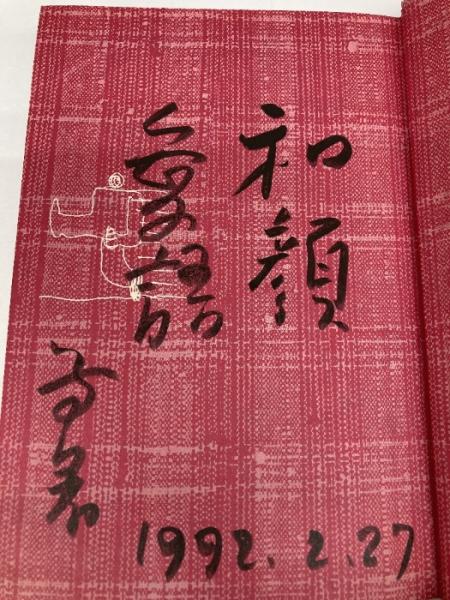 和顔
愛語
1992.2.27